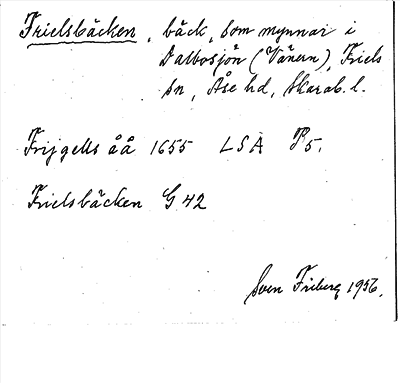 Frielsbäcken, bäck, som mynnar i
Dalbosjön (Vänern), Friels
sn, Åse hd, Skarab. l.
Frijgells åå 1655 LSA P5.
Frielsbäcken G 42
Sven Friberg 1956.